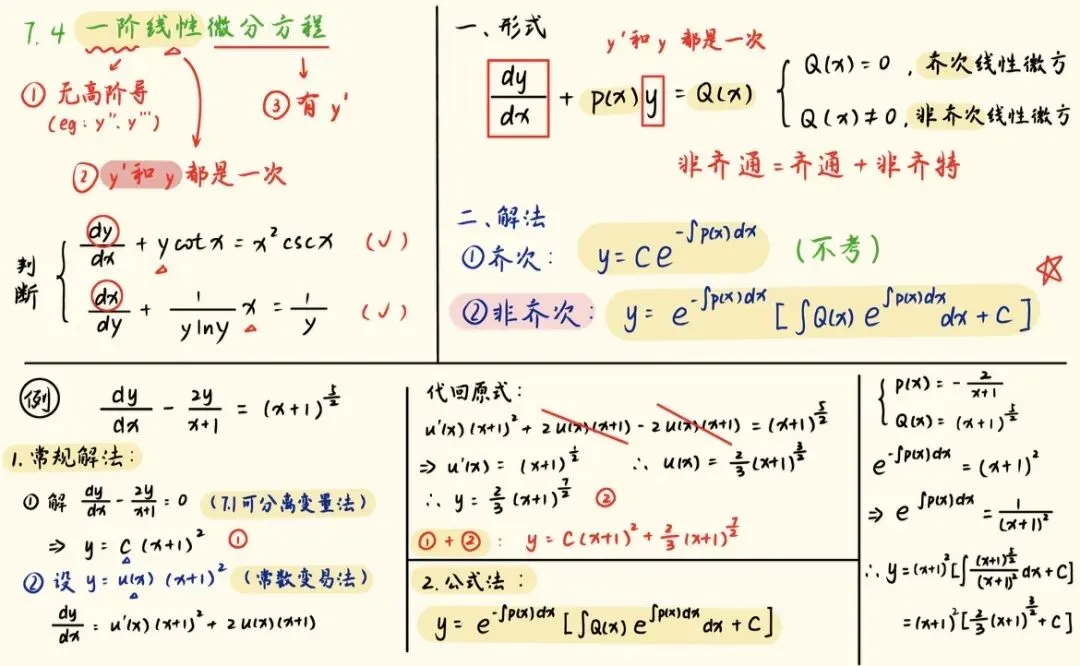 7.4 一阶线性微分方程
① 无高阶导
(eg: y''、y''')
③ 有 y'
② y'和y 都是一次
判断
dy/dx + y cot x = x² csc x (√)
dx/dy + 1/(y ln y) x = 1/y (√)
一、形式
y'和y 都是一次
dy/dx + P(x) y = Q(x)
Q(x) = 0, 齐次线性微方
Q(x) ≠ 0, 非齐次线性微方
非齐通 = 齐通 + 非齐特
二、解法
①齐次: y = C e^{-∫P(x)dx} (不考)
②非齐次: y = e^{-∫P(x)dx} [∫Q(x) e^{∫P(x)dx} dx + C]
例 dy/dx - 2y/(x+1) = (x+1)^{5/2}
1. 常规解法:
① 解 dy/dx - 2y/(x+1) = 0 (7.1可分离变量法)
⇒ y = C (x+1)² ①
② 设 y = u(x) (x+1)² (常数变易法)
dy/dx = u'(x) (x+1)² + 2u(x)(x+1)
代回原式:
u'(x)(x+1)² + 2u(x)(x+1) - 2u(x)(x+1) = (x+1)^{5/2}
⇒ u'(x) = (x+1)^{1/2} ∴ u(x) = 2/3 (x+1)^{3/2}
∴ y = 2/3 (x+1)^{7/2} ②
①+②: y = C(x+1)² + 2/3 (x+1)^{7/2}
2. 公式法:
y = e^{-∫P(x)dx} [∫Q(x) e^{∫P(x)dx} dx + C]
P(x) = - 2/(x+1)
Q(x) = (x+1)^{5/2}
e^{-∫P(x)dx} = (x+1)²
⇒ e^{∫P(x)dx} = 1/(x+1)²
∴ y = (x+1)² [∫ (x+1)^{5/2}/(x+1)² dx + C]
= (x+1)² [2/3 (x+1)^{3/2} + C]